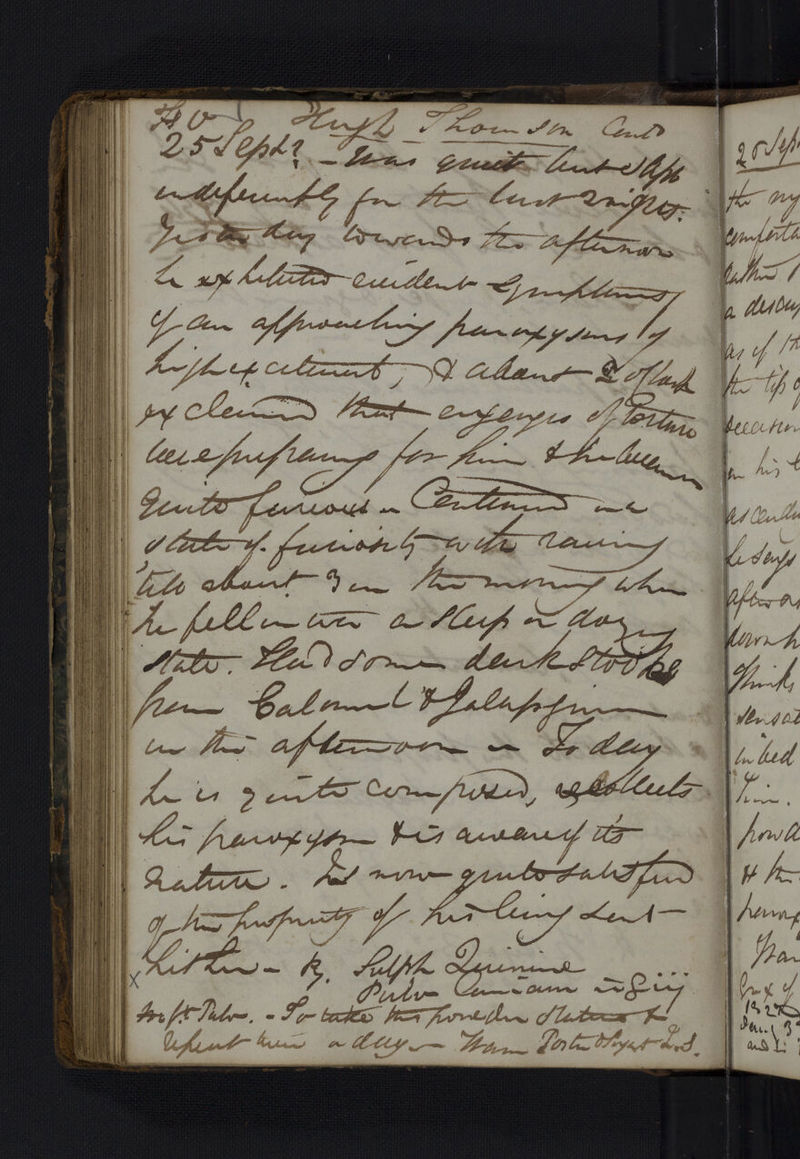 Hugh Thomson Contd
25 Septr. - Was quiet but slept
indifferently for the last 2 nights.
Yesterday towards the afternoon
he exhibited evident symptoms
of an approaching paroxysm of
high excitement, & about 2 oClock
exclaimed that engenges of Torture
were preparing for him & he became
quite furious - Continued in a
state of furiosity with raving
till about 3 in the morning when
he fell into a sleep or dozing
state. Had some dark stools
from Calomel & Jalap given
in the afternoon - To day
he is quite composed, recollects
his paroxysm & is aware of its
nature. Is now quite satisfied
of the propriety of his being sent
hither - R. Sulph Quinine
Pulv
ft Pulv. - To take this powder &
repeat twice a day - Warm
25 Sep
the
comforta
rather
a
as if th
the tip of
in his
ascend
he says
after a
down
Thinks
sensat
in bed
him.
& the